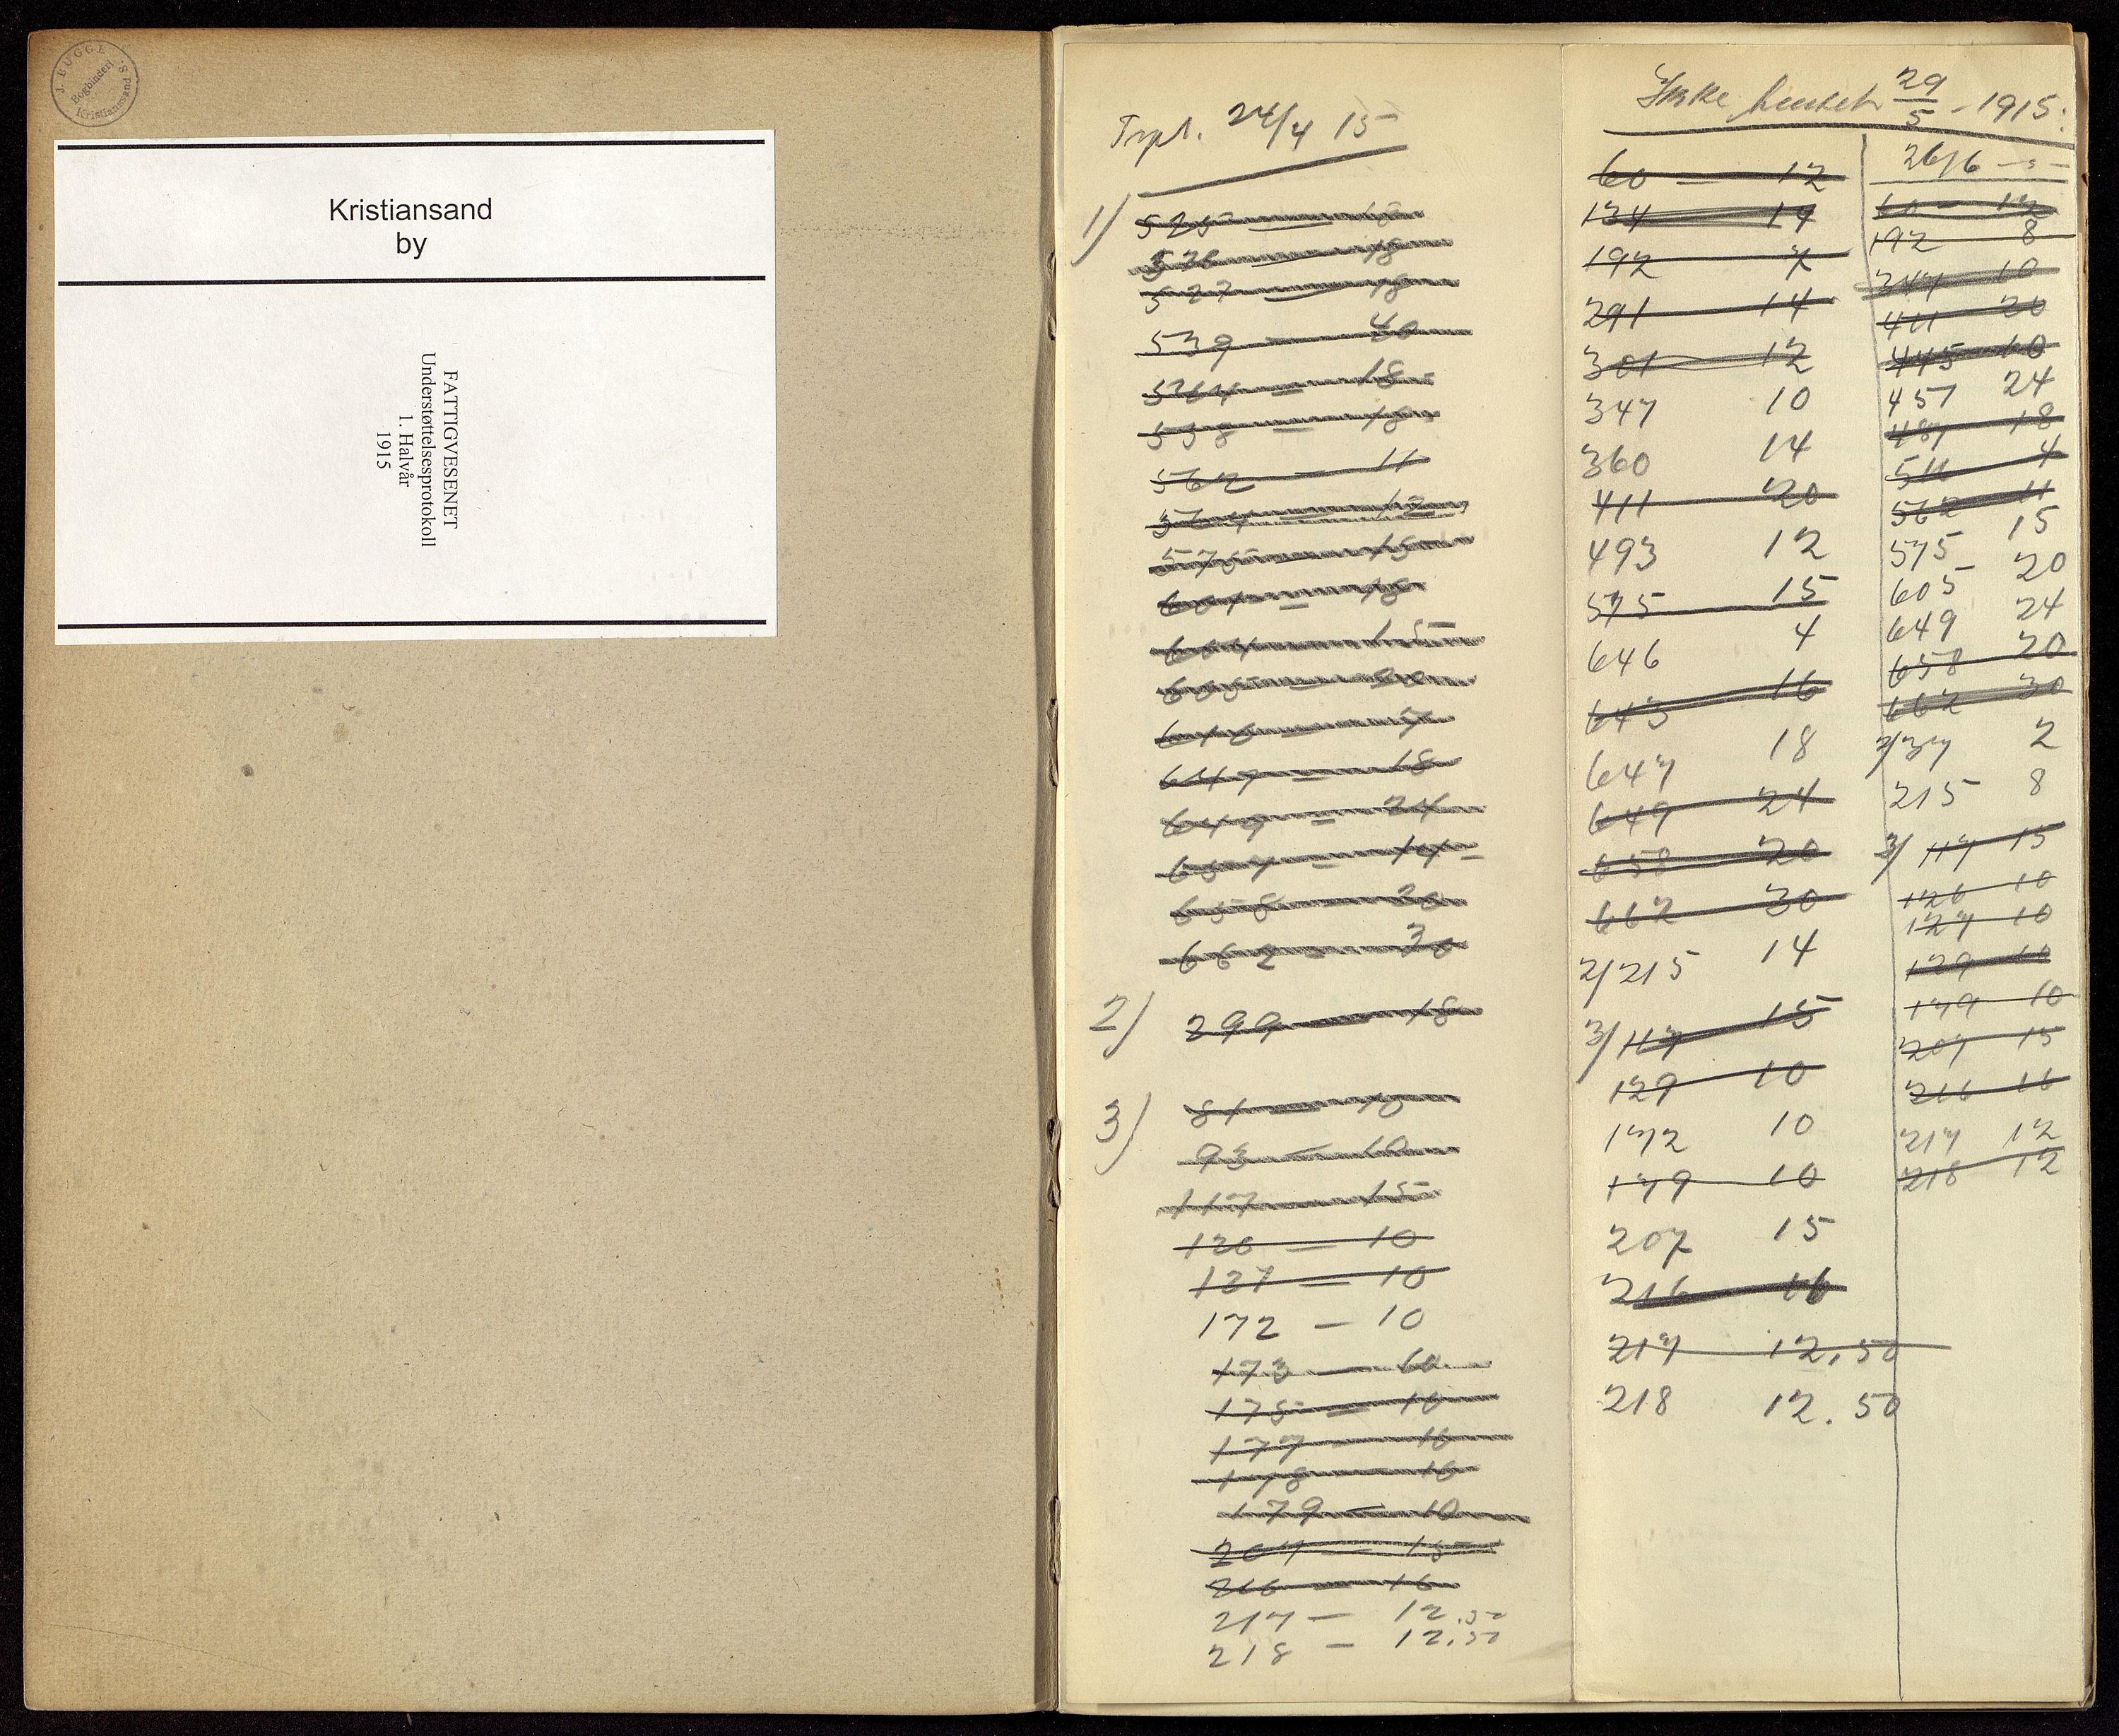 J. BUGGE
Bogbinderi
Kristianssand S.
Kristiansand
by
FATTIGVESENET
Understøttelsesprotokoll
1. Halvår
1915
24/4 15
1) 525 — 18
526 — 18
527 — 18
539 — 40
564 — 18
558 — 18
562 — 11
564 — 12
575 — 15
601 — 18
604 — 15
605 — 20
616 — 7
647 — 18
649 — 24
657 — 14
658 — 20
662 — 30
2) 299 — 18
3) 81 — 10
93 — 10
117 — 15
126 — 10
127 — 10
172 — 10
173 — 10
175 — 10
177 — 10
178 — 10
179 — 10
207 — 15
216 — 16
217 — 12.50
218 — 12.50
Ikke hentet 29/5 - 1915:
60 — 12
134 14
192 7
291 14
301 12
347 10
360 14
411 20
493 12
575 15
646 4
643 16
647 18
649 24
658 20
662 30
2/ 215 14
3/ 117 15
129 10
172 10
179 10
207 15
216 16
217 12,50
218 12.50
26/6 -"-
60 — 12
192 8
347 10
411 20
445 10
457 24
487 18
511 4
562 11
575 15
605 20
649 24
658 20
662 30
2/ 37 2
215 8
3/ 117 15
126 10
127 10
129 10
179 10
207 15
216 16
217 12
218 12